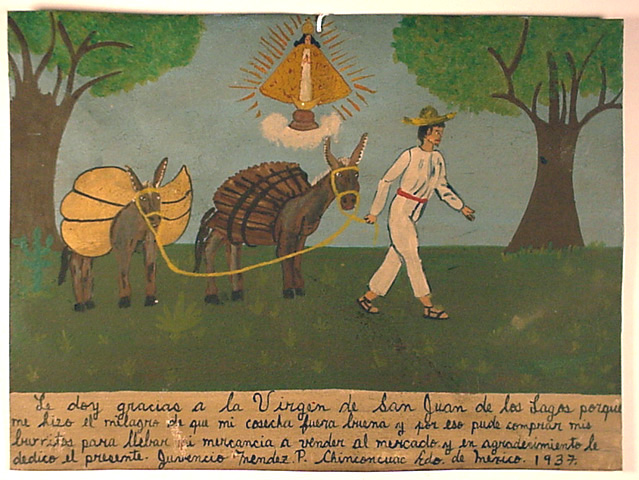 Le doy gracias a la Virgen de San Juan de los Lagos porque
me hizo el milagro de que mi cosecha fuera buena y por eso pude comprar mis
burritos para llebar mi mercancia a vender al mercado y en agradecimiento le
dedico el presente. Juvencio Mendez P. Chinconcuac Edo. de Mexico. 1937.